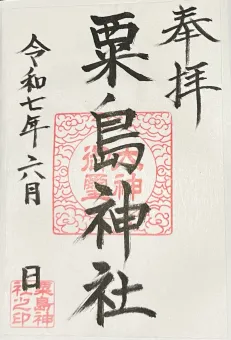 奉拝
粟島神社
令和七年六月 日
粟島神
社之印